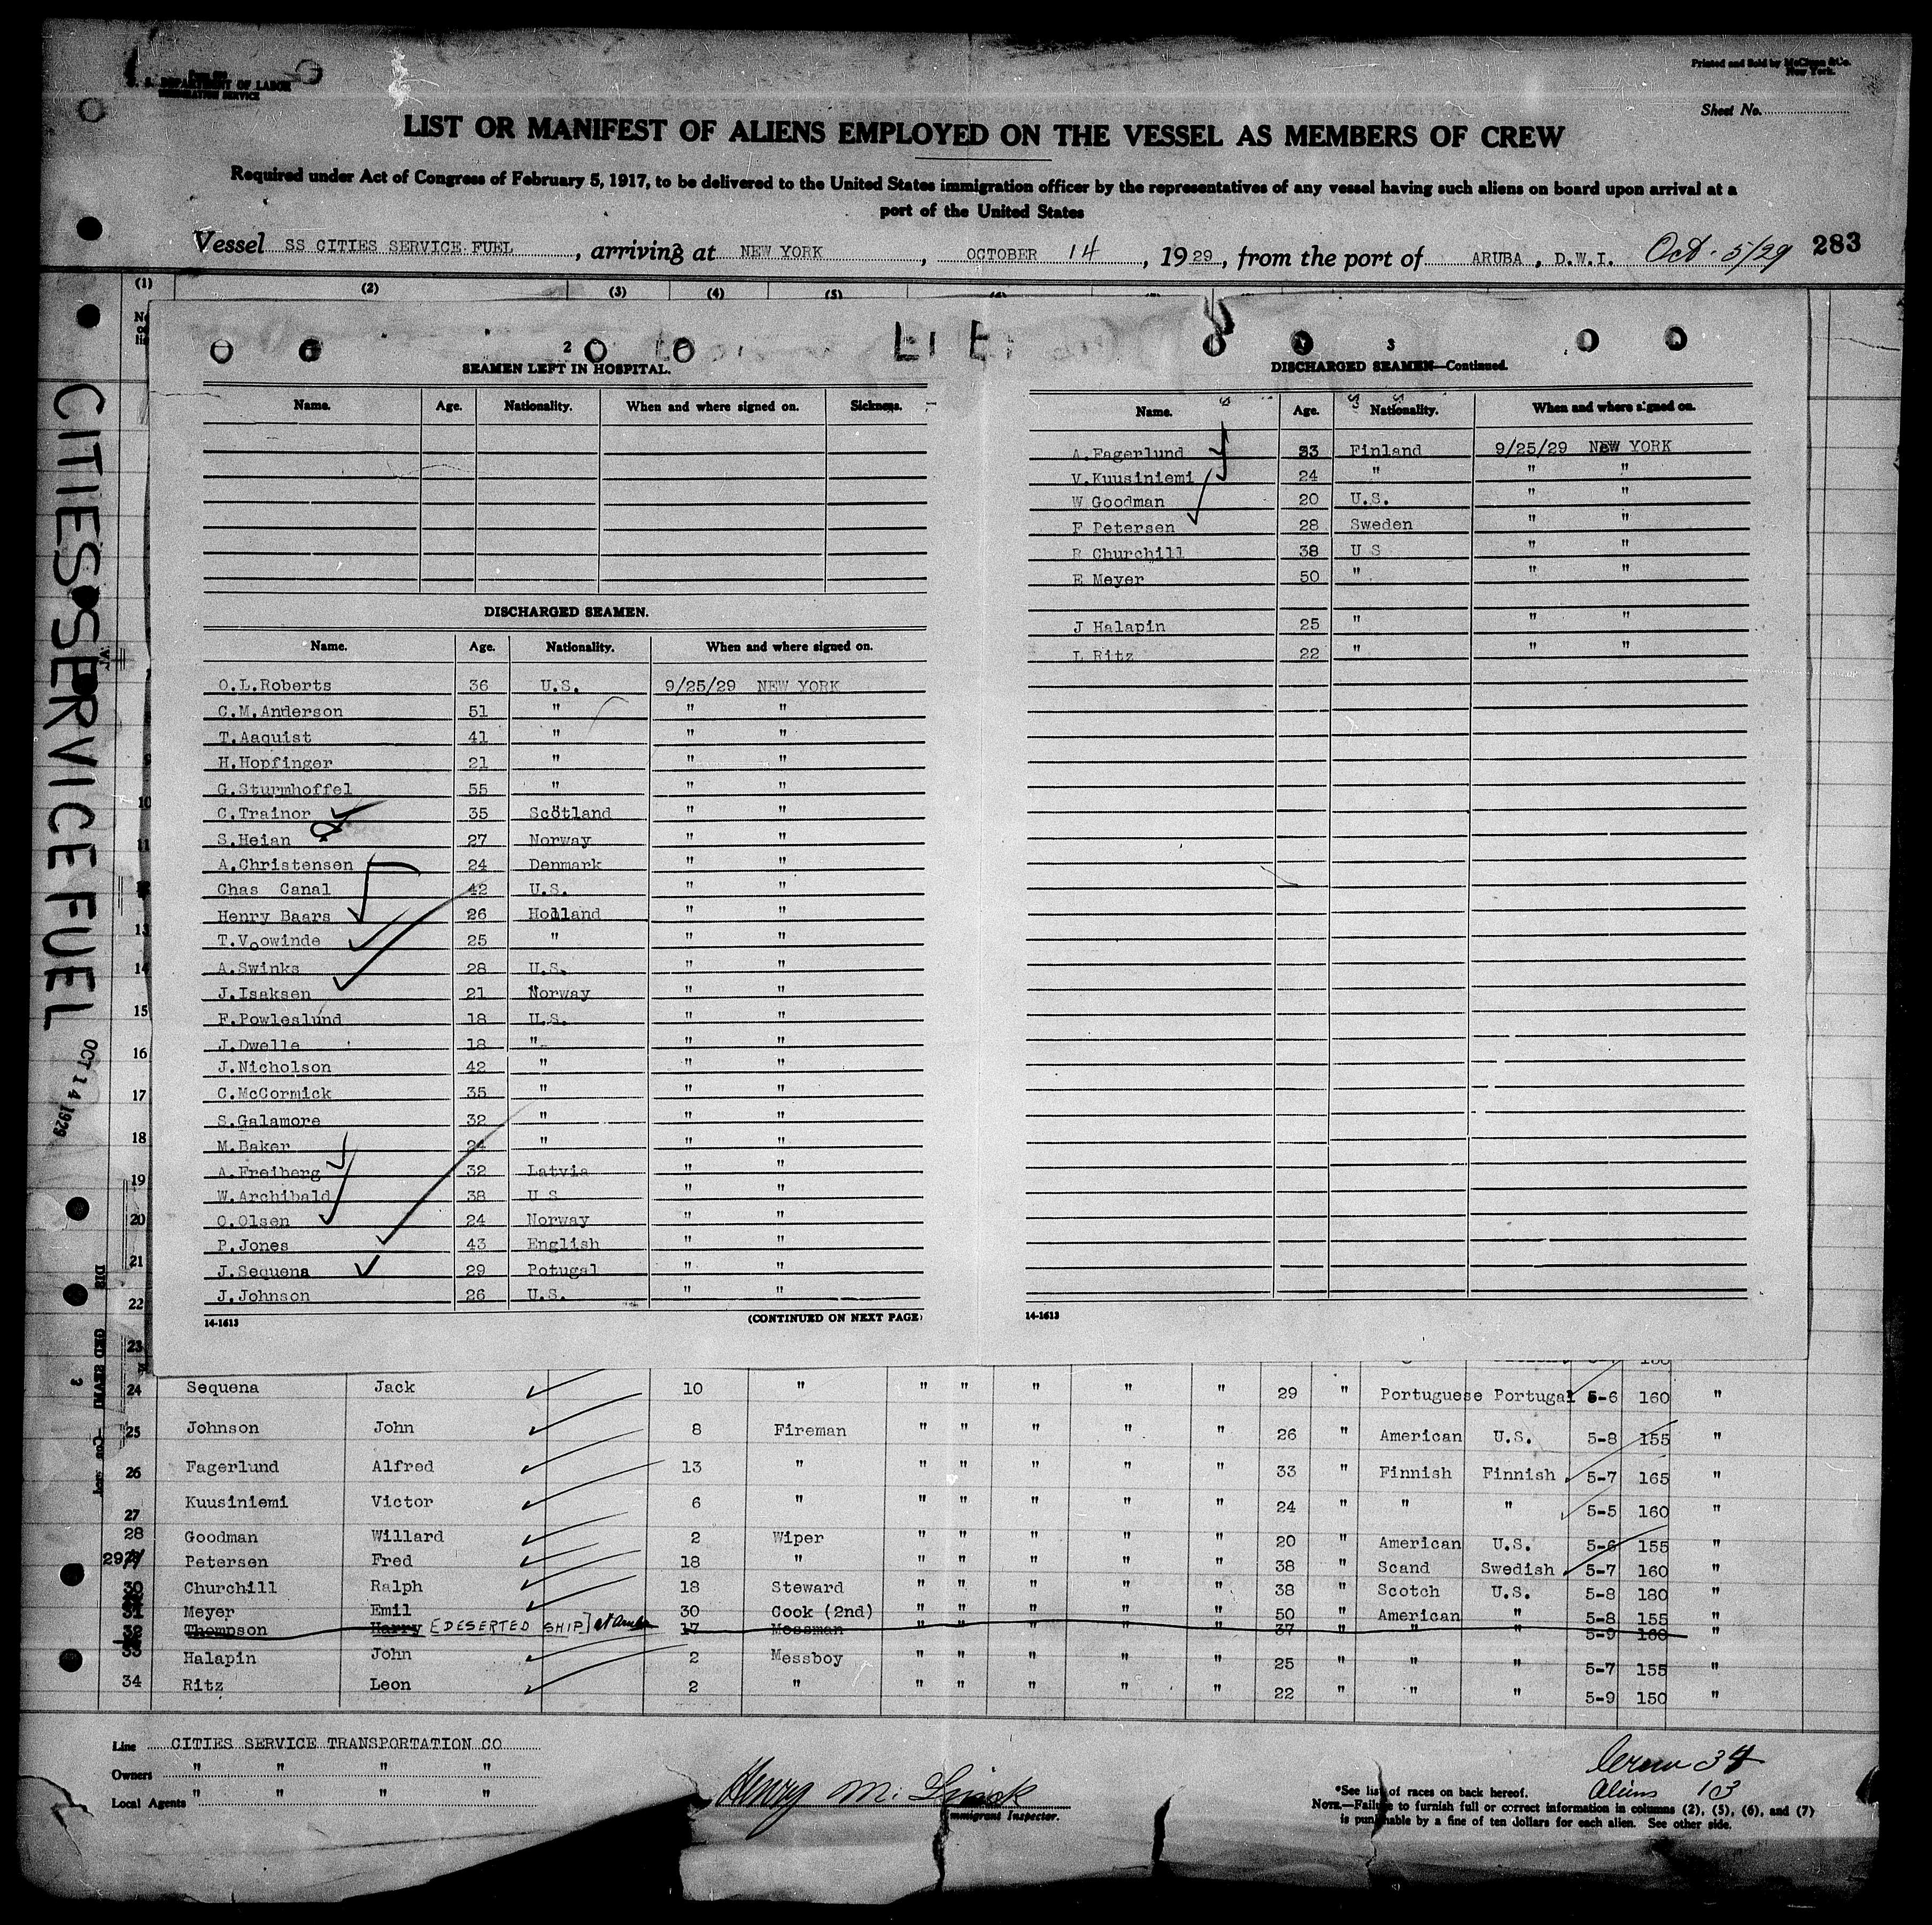 U. S. DEPARTMENT OF LABOR
IMMIGRATION SERVICE
Printed and Sold by McClunn & Co.
New York.
Sheet No.
LIST OR MANIFEST OF ALIENS EMPLOYED ON THE VESSEL AS MEMBERS OF CREW
Required under Act of Congress of February 5, 1917, to be delivered to the United States immigration officer by the representatives of any vessel having such aliens on board upon arrival at a
port of the United States
Vessel SS CITIES SERVICE FUEL, arriving at NEW YORK, OCTOBER 14, 1929, from the port of ARUBA, D.W.I. Oct. 5/29 283
(1) (2) (3) (4) (5)
CITIES SERVICE FUEL
OCT 14 1929
2
SEAMEN LEFT IN HOSPITAL.
Name. Age. Nationality. When and where signed on. Sickness.
DISCHARGED SEAMEN.
Name. Age. Nationality. When and where signed on.
O.L.Roberts 36 U.S. 9/25/29 NEW YORK
C.M.Anderson 51 " " "
T.Aaquist 41 " " "
H.Hopfinger 21 " " "
G.Sturmhoffel 55 " " "
C.Trainor 35 Scotland " "
S.Heian 27 Norway " "
A.Christensen 24 Denmark " "
Chas Canal 42 U.S. " "
Henry Baars 26 Holland " "
T.Voowinde 25 " " "
A.Swinks 28 U.S. " "
J.Isaksen 21 Norway " "
F.Powleslund 18 U.S. " "
J.Dwelle 18 " " "
J.Nicholson 42 " " "
C.McCormick 35 " " "
S.Galamore 32 " " "
M.Baker 24 " " "
A.Freiberg 32 Latvia " "
W.Archibald 38 U S " "
O.Olsen 24 Norway " "
P.Jones 43 English " "
J.Sequena 29 Potugal " "
J.Johnson 26 U.S. " "
14-1613 (CONTINUED ON NEXT PAGE)
3
DISCHARGED SEAMEN—Continued.
Name. Age. Nationality. When and where signed on.
A.Fagerlund 33 Finland 9/25/29 NEW YORK
V.Kuusiniemi 24 " " "
W Goodman 20 U.S. " "
F Petersen 28 Sweden " "
R Churchill 38 U S " "
E Meyer 50 " " "
J Halapin 25 " " "
L Ritz 22 " " "
14-1613
9
10
11
12
13
14
15
16
17
18
19
20
21
22
23
24 Sequena Jack 10 " " " " " " 29 " Portuguese Portugal 5-6 160 "
25 Johnson John 8 Fireman " " " " " 26 " American U.S. 5-8 155 "
26 Fagerlund Alfred 13 " " " " " " 33 " Finnish Finnish 5-7 165 "
27 Kuusiniemi Victor 6 " " " " " " 24 " " " 5-5 160 "
28 Goodman Willard 2 Wiper " " " " " 20 " American U.S. 5-6 155 "
29 Petersen Fred 18 " " " " " " 38 " Scand Swedish 5-7 160 "
30 Churchill Ralph 18 Steward " " " " " 38 " Scotch U.S. 5-8 180 "
31 Meyer Emil 30 Cook (2nd) " " " " " 50 " American " 5-8 155 "
32 Thompson Harry [DESERTED SHIP] at Aruba 17 Messman " " " " " 37 " " " 5-9 160 "
33 Halapin John 2 Messboy " " " " " 25 " " " 5-7 155 "
34 Ritz Leon 2 " " " " " " 22 " " " 5-9 150 "
Line CITIES SERVICE TRANSPORTATION CO
Owners " " " "
Local Agents " " " "
Immigrant Inspector.
Crew 34
Aliens 13
*See list of races on back hereof.
NOTE.—Failure to furnish full or correct information in columns (2), (5), (6), and (7)
is punishable by a fine of ten dollars for each alien. See other side.